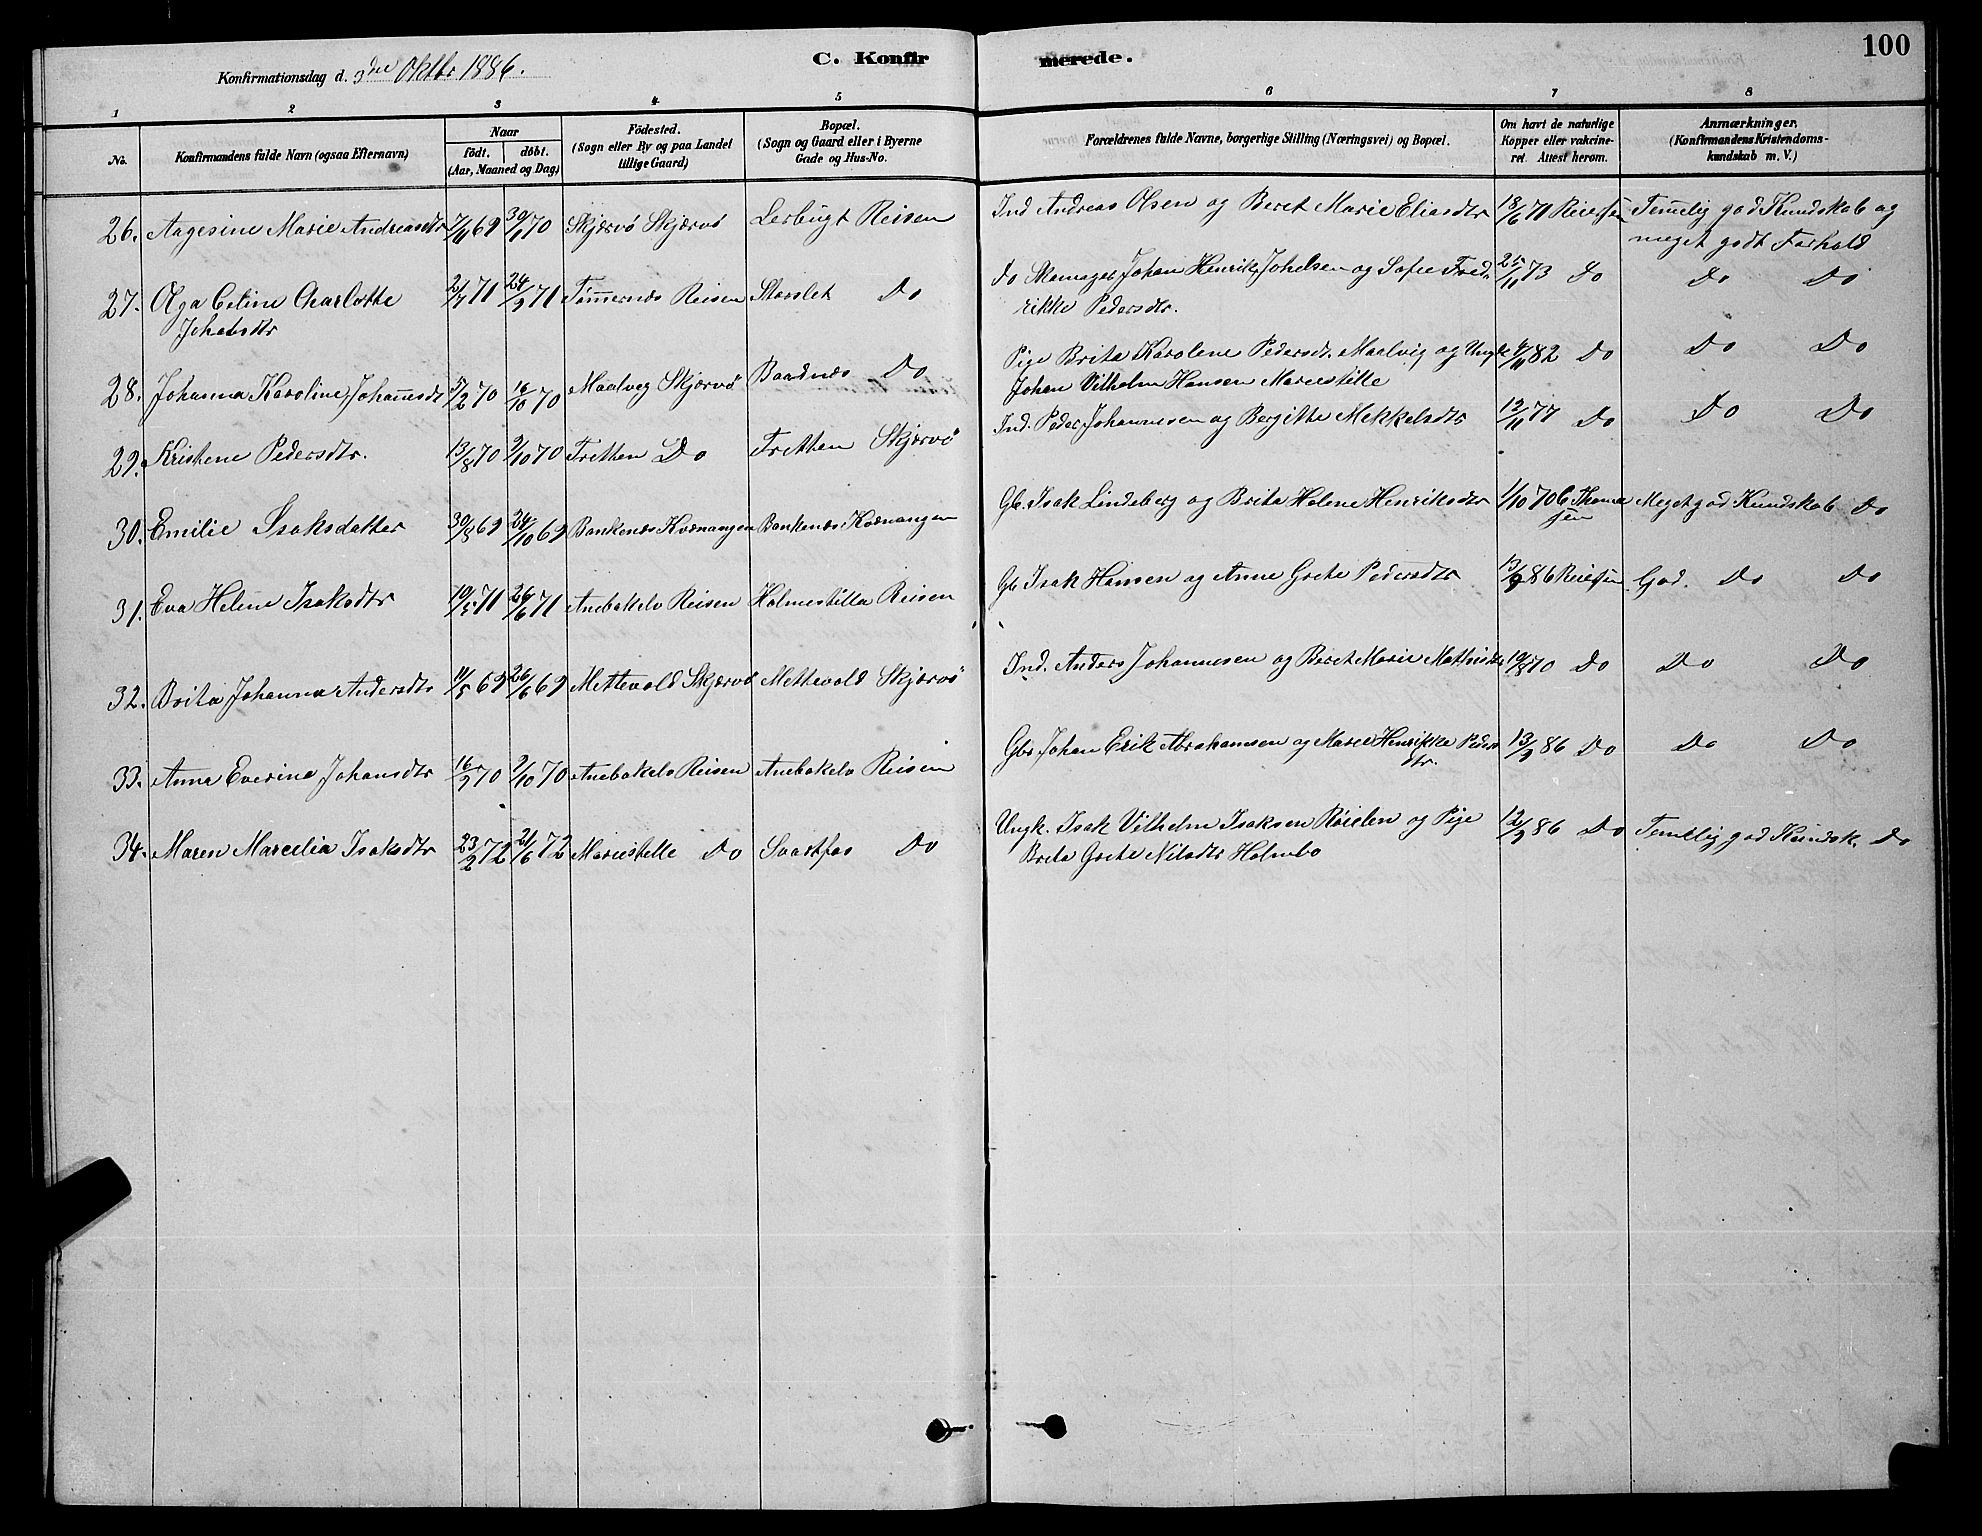 100
Konfirmationsdag d. 3die Oktbr 1886.
C. Konfirmerede.
1 2 3 4 5 6 7 8
No.
Konfirmandens fulde Navn (ogsaa Efternavn)
Naar
født. døbt.
(Aar, Maaned og Dag)
Födested.
(Sogn eller By og paa Landet
tillige Gaard)
Bopæl.
(Sogn og Gaard eller i Byerne
Gade og Hus-No.
Forældrenes fulde Navne, borgerlige Stilling (Næringsvei) og Bopæl.
Om havt de naturlige
Kopper eller vakcine-
ret. Attest herom.
Anmærkninger,
(Konfirmandens Kristendoms-
kundskab m. V.)
26. Aagesine Marie Andreasdtr 7/11 69 30/1 70 Skjærvö Skjærvö Lerbugt Reisen Ind Andreas Olsen og Beret Marie Eliasdtr 18/6 71 Reiersen Temelig god Kundskab og
meget godt Forhold
27. Olga Celine Charlotte 2/7 71 24/9 71 Tømmernes Reisen Storslet Do Do Skomager Johan Henrik Johelsen og Sofie Fred- 25/11 73 Do Do Do
Johelsdtr rikke Pedersdtr.
28. Johanna Karoline Johannsdt 5/2 70 16/10 70 Maalveg Skjærvö Baadnæs Do Pige Brita Karolene Pedersdt. Maalvig og Ungk 4/11 82 Do Do Do
Johan Vilhelm Hansen Mariestille
29. Kristene Pedersdtr. 13/8 70 2/10 70 Tretten Do Tretten Skjærvö Ind. Peder Johannesen og Bergitte Mekkelsdtr 12/11 77 Do Do Do
30. Emilie Isaksdatter 30/8 69 24/10 69 Bankenæs Kvænangen Bankenæs Kvænangen Gb. Isak Lindeberg og Brita Helene Henriksdtr 1/10 70 C Thomas Meget god Kundskab Do
sen
31. Eva Helene Isaksdtr 19/5 71 26/6 71 Anebakelv Reisen Holmestilla Reisen Gb Isak Hansen og Anne Grete Pedersdtr 13/9 86 Reiersen God. Do Do
32. Brita Johanna Andersdtr 11/5 69 26/6 69 Mettevold Skjærvö Mettevold Skjærvö Ind. Anders Johannesen og Beret Marie Mathisdtr 19/8 70 Do Do Do
33. Anna Everina Johansdtr 16/2 70 2/10 70 Anebakelv Reisen Anebakelv Reisen Gbr Johan Erik Abrahamsen og Marie Henrikke Peders 13/9 86 Do Do Do
dtr.
34. Maren Marcelia Isaksdtr 23/2 72 21/6 72 Mariestelle Do Svartfos Do Ungk. Isak Vilhelm Isaksen Röielen og Pige 12/9 86 Do Temelig god Kundsk. Do
Brita Grete Nilsdtr Holmbo